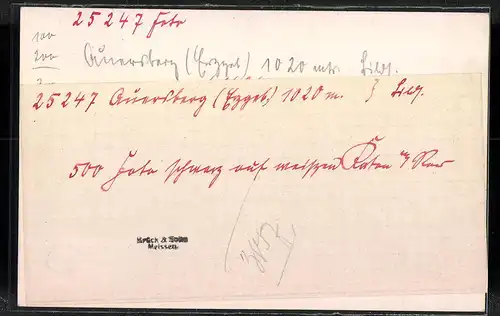 25247 Foto
100
200
Auersberg (Erzgeb.) 1020 mtr.
25247 Auersberg (Erzgeb.) 1020 m.
500 Foto schwarz auf weissen Karton
Brück & Sohn
Meissen